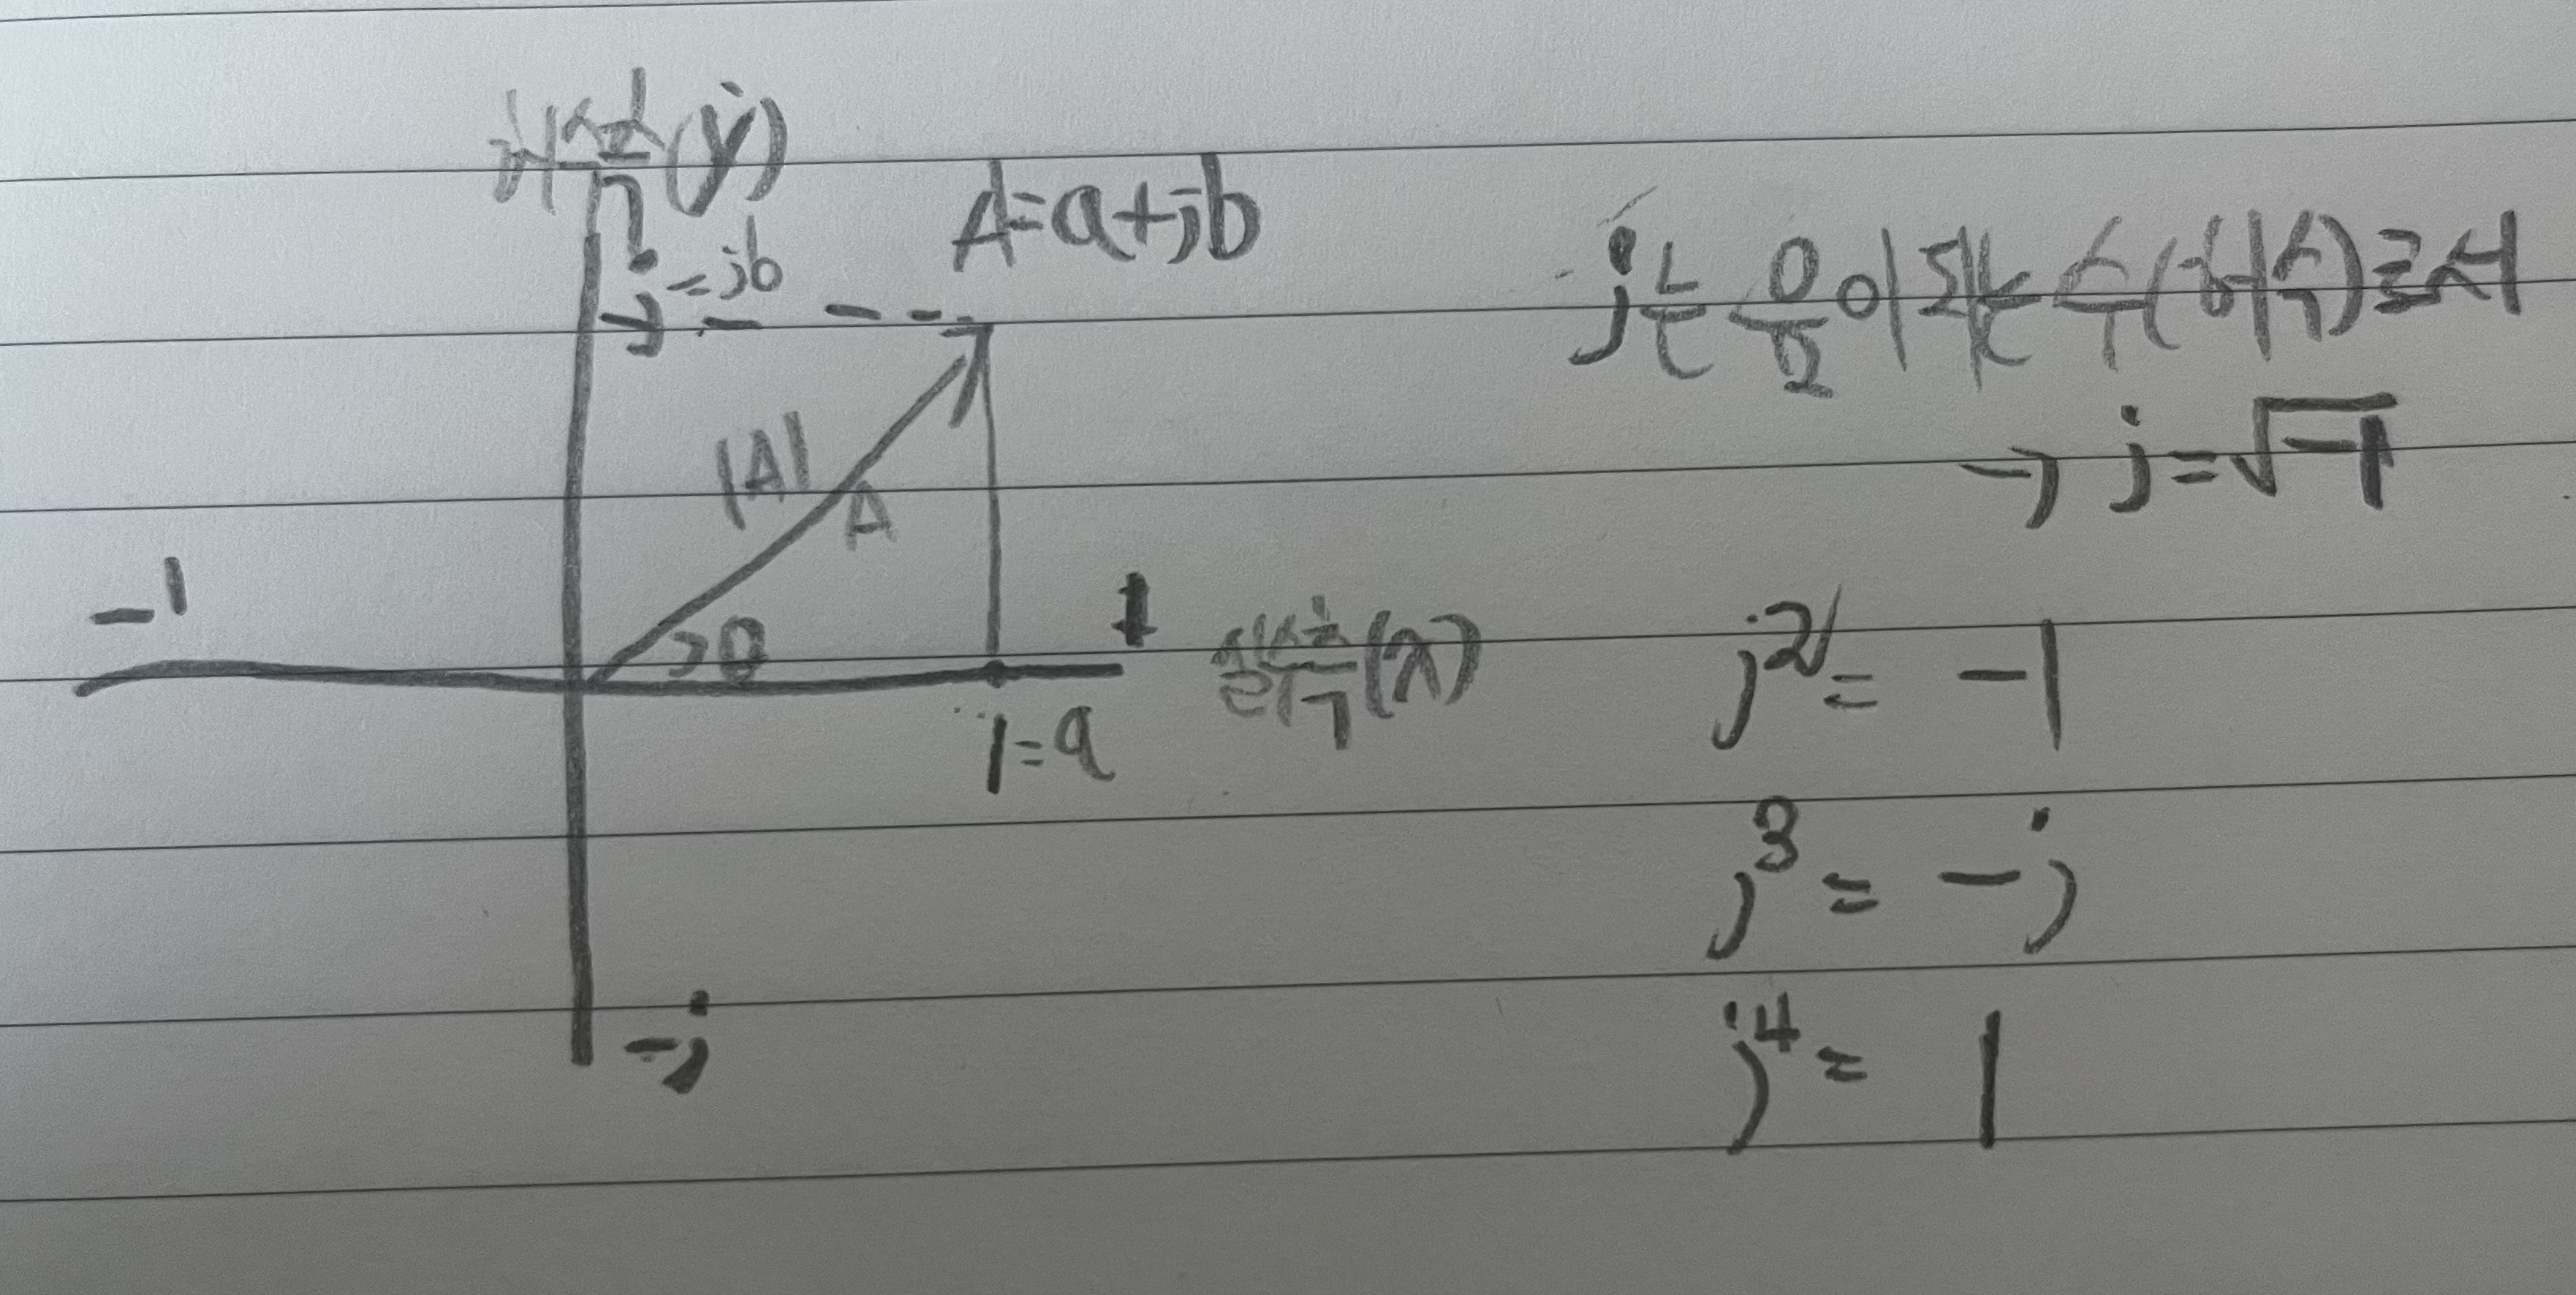 허수축(y)
j=jb
A=a+jb
|A|
A
θ
-1
1
실수축(x)
1=a
-j
j는 음이 되는 수(허수)로서
→ j=√-1
j²= -1
j³= -j
j⁴= 1